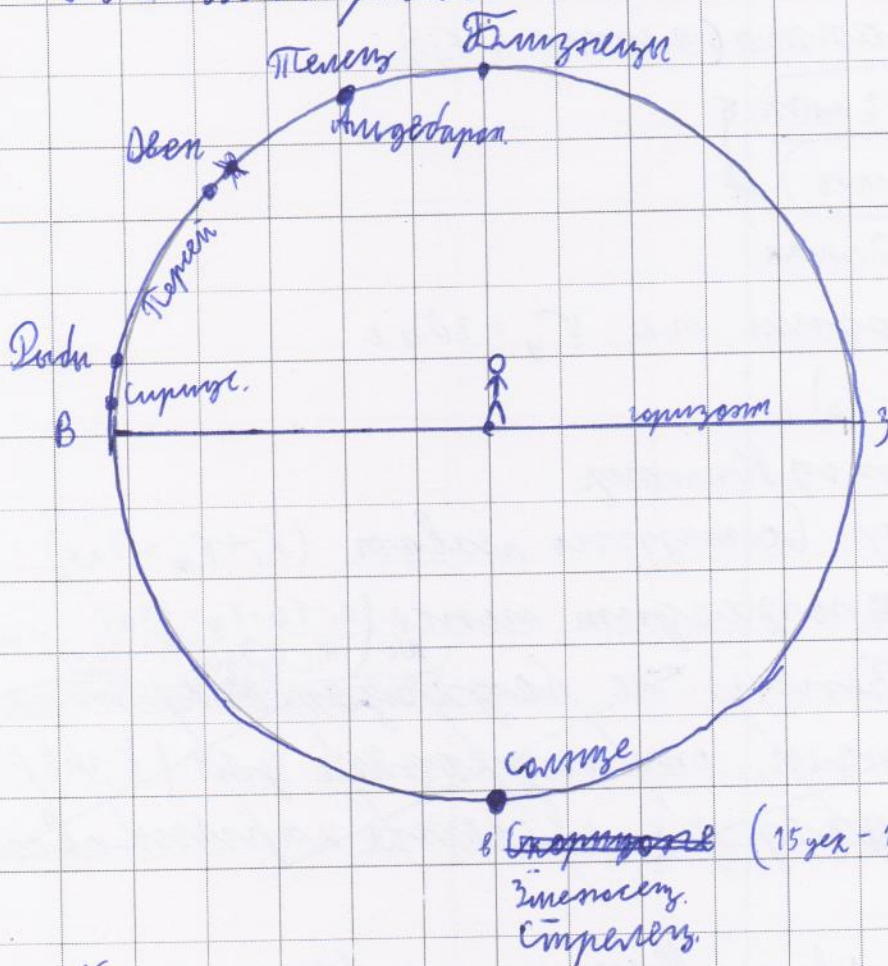 Телец
Близнецы
Альдебаран.
Овен
Персей
Рыбы
Сириус.
В
горизонт
З
Солнце
в Скорпионе (15 дек -
Змееносец.
Стрелец.